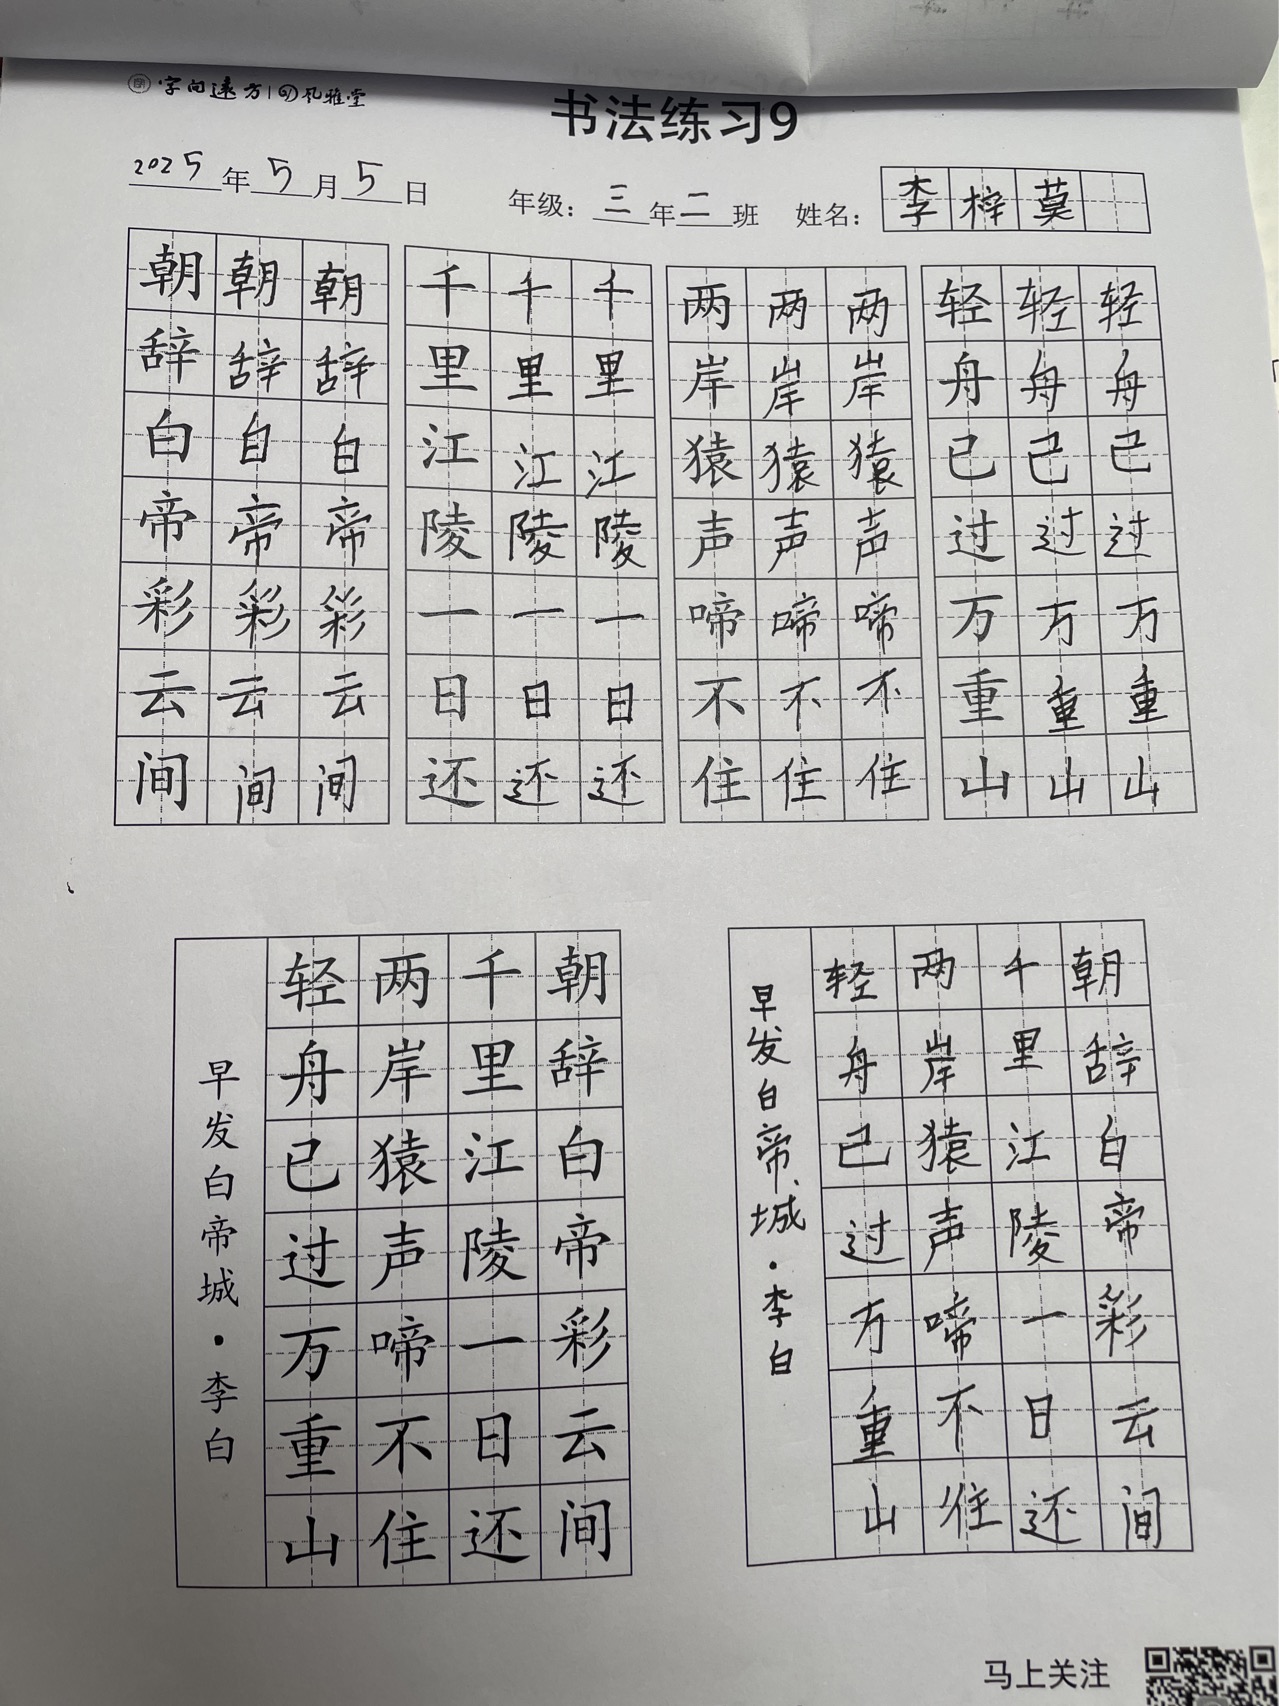 字间远方 风雅堂
书法练习9
2025年5月5日 年级：三年二班 姓名：李梓莫
朝朝朝 千千千 两两两 轻轻轻
辞辞辞 里里里 岸岸岸 舟舟舟
白白白 江江江 猿猿猿 已已已
帝帝帝 陵陵陵 声声声 过过过
彩彩彩 一一一 啼啼啼 万万万
云云云 日日日 不不不 重重重
间间间 还还还 住住住 山山山
朝辞白帝彩云间
千里江陵一日还
两岸猿声啼不住
轻舟已过万重山
早发白帝城·李白
朝辞白帝彩云间
千里江陵一日还
两岸猿声啼不住
轻舟已过万重山
早发白帝城·李白
马上关注